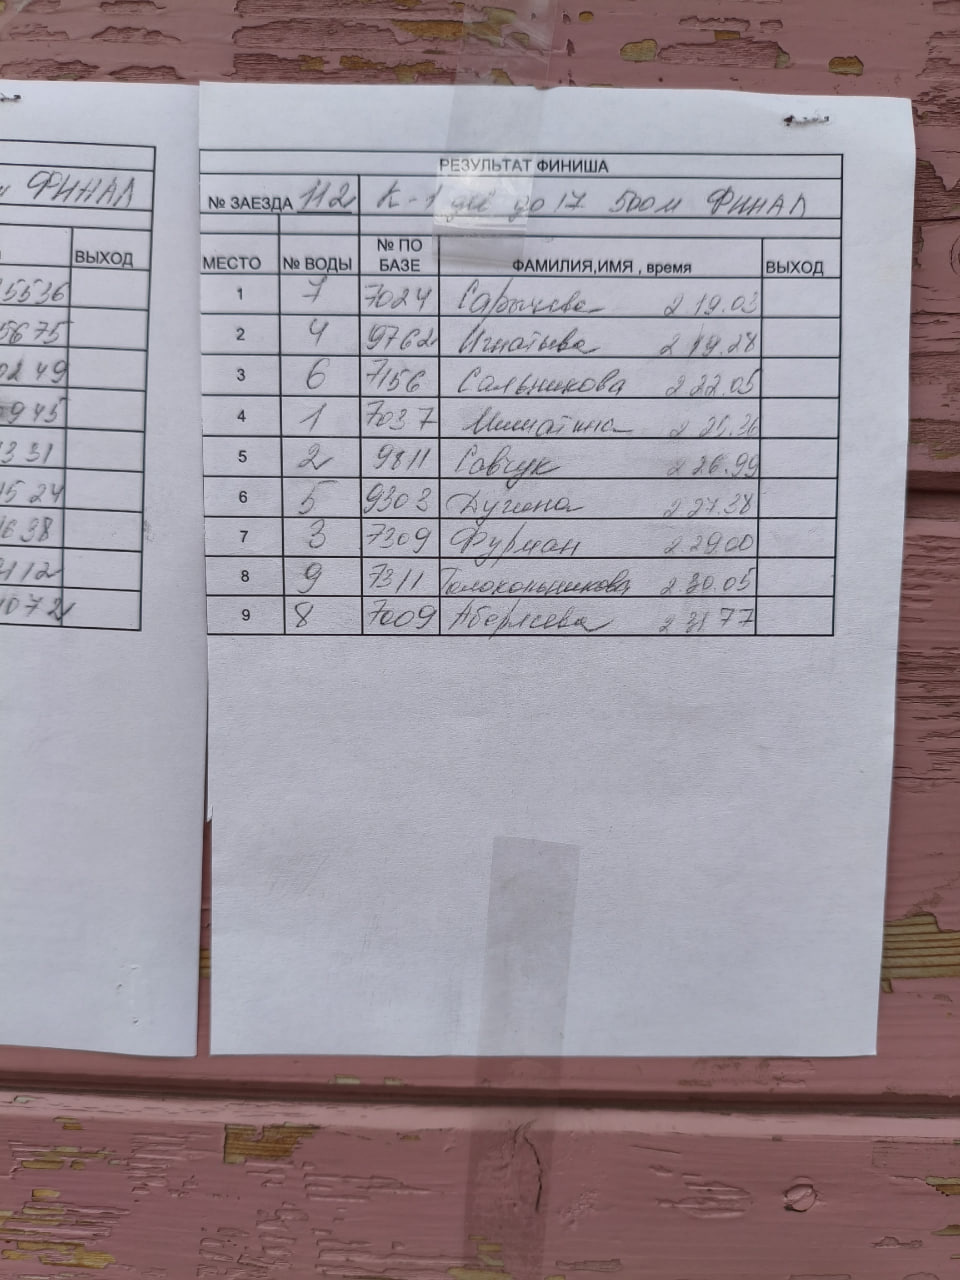 ФИНАЛ
ВЫХОД
5536
5675
0249
945
331
1524
1638
112
1072
РЕЗУЛЬТАТ ФИНИША
№ ЗАЕЗДА 112 К-1 до 17 500м ФИНАЛ
МЕСТО № ВОДЫ № ПО БАЗЕ ФАМИЛИЯ,ИМЯ , время ВЫХОД
1 7 7024 Сарычева 2 19.03
2 4 9762 Игнатьева 2 19.28
3 6 7156 Сальникова 2 22.05
4 1 7037 2 25.36
5 2 9811 Савчук 2 26.99
6 5 9303 Дугина 2 27.38
7 3 7309 Фурман 2 29.00
8 9 7311 Толокольникова 2.30.05
9 8 7009 2 31 77